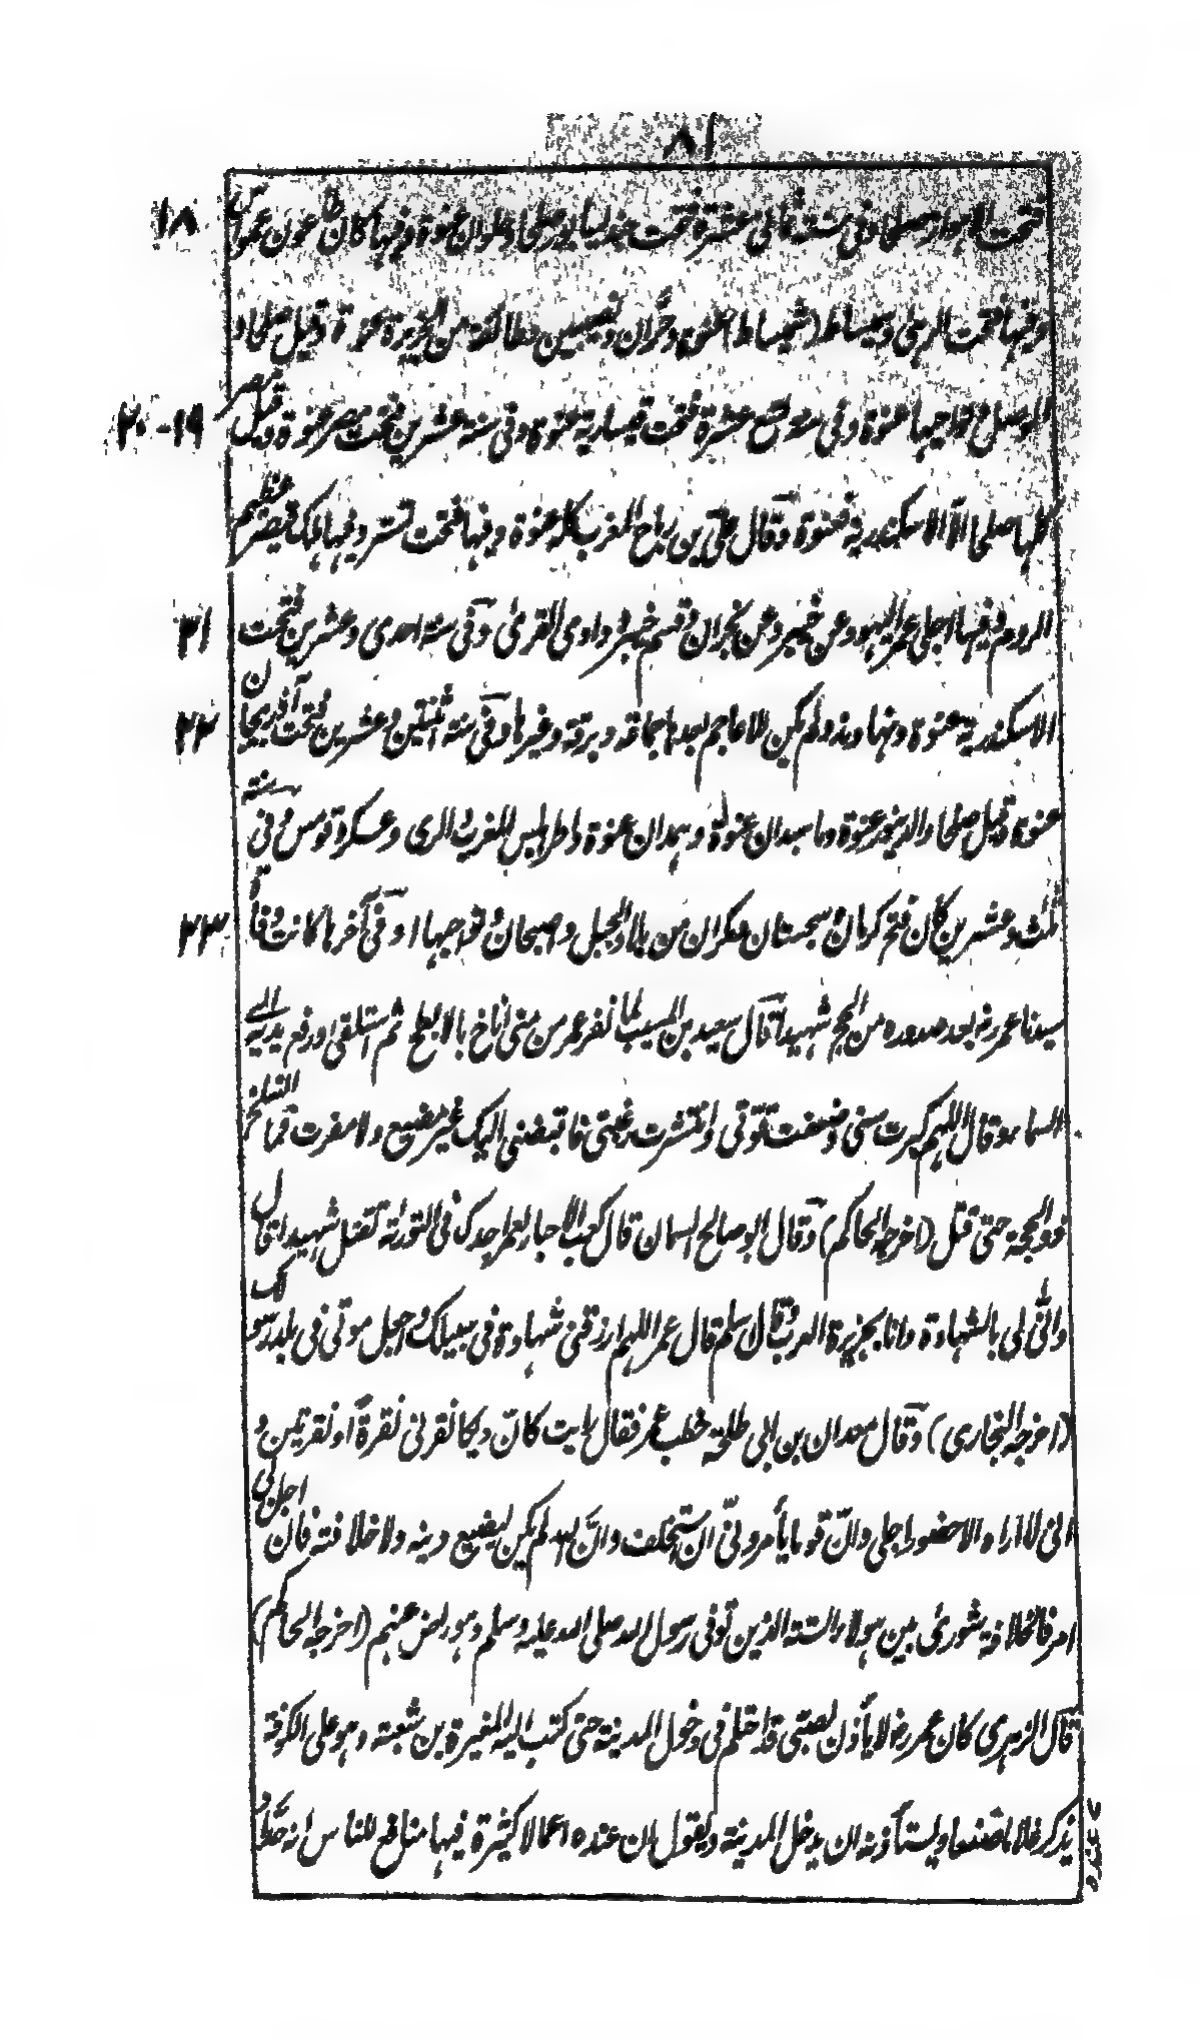 ٨١
١٨
فتحت الاهواز صلحا وفی سنة ثمانی عشرة فتحت جندیسابور صلحا وحلوان عنوة وفیها کان طاعون عمواس
وفیها فتحت الرهی وسمیساط (شمیساط) عنوة وحران ونصیبین وطائفة من الجزیرة عنوة وقیل صلحا و
١٩-٢٠
الموصل ونواحیها عنوة وفی سنة تسع عشرة فتحت قیساریة عنوة وفی سنة عشرین فتحت مصر عنوة وقیل مصر
کلها صلحا الا الاسکندریة فعنوة وقال علی بن رباح المغرب کله عنوة وفیها فتحت تستر وفیها هلک قیصر عظیم
الروم وفیها اجلی عمر الیهود عن خیبر وعن نجران وقسم خیبر ووادی القری وفی سنة احدی وعشرین فتحت
٢١
الاسکندریة عنوة ونهاوند ولم یکن للاعاجم بعدها جماعة وبرقة وغیرها وفی سنة اثنتین وعشرین فتحت آذربیجان
٢٢
عنوة وقیل صلحا والدینور عنوة وماسبدان عنوة وهمدان عنوة واطرابلس المغرب والری وعسکر وقومس وفی سنة
ثلث وعشرین کان فتح کرمان وسجستان ومکران من بلاد الجبل واصبهان ونواحیها وفی آخرها کانت وفاة
٢٣
سیدنا عمر رضه بعد صدوره من الحج شهیدا قال سعید بن المسیب لما نفر عمر من منی اناخ بالابطح ثم استلقی ورفع یدیه الی
السماء وقال اللهم کبرت سنی وضعفت قوتی وانتشرت رعیتی فاقبضنی الیک غیر مضیع ولا مفرط فما انسلخ
ذو الحجة حتی قتل (اخرجه الحاکم) وقال ابو صالح السمان قال کعب الاحبار لعمر اجدک فی التورٰة تقتل شهیدا قال
وانی لی بالشهادة وانا بجزیرة العرب وقال اسلم قال عمر اللهم ارزقنی شهادة فی سبیلک واجعل موتی فی بلد رسولک
(اخرجه البخاری) وقال معدان بن ابی طلحة خطب عمر فقال رایت کان دیکا نقرنی نقرة او نقرتین و
انی لا اراه الا حضور اجلی وان قوما یأمرونی ان استخلف وان الله لم یکن لیضیع دینه ولا خلافته فان اجل بی
امر فالخلافة شوری بین هولاء الستة الذین توفی رسول الله صلی الله علیه وسلم وهو راض عنهم (اخرجه الحاکم)
قال الزهری کان عمر رضه لا یأذن لصبی قد احتلم فی دخول المدینة حتی کتب الیه المغیرة بن شعبة وهو علی الکوفة
یذکر غلاما صنعا ویستأذنه ان یدخل المدینة ویقول ان عنده اعمالا کثیرة فیها منافع للناس انه حداد
عنده